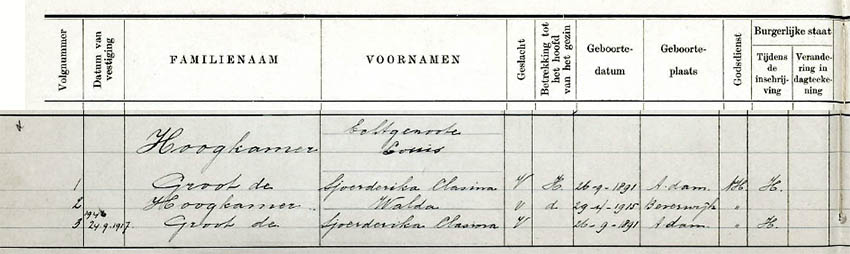 Volgnummer Datum van vestiging FAMILIENAAM VOORNAMEN Geslacht Betrekking tot het hoofd van het gezin Geboorte-datum Geboorte-plaats Godsdienst Burgerlijke staat Tijdens de inschrij-ving Verande-ring in dagteeke-ning
Echtgenoote
Hoogkamer Louis
1 Groot de Sjoerderika Clasina V H. 26-9-1891 A.dam. NH. H.
2 Hoogkamer Walda v d 29-4-1915 Beverwijk "
3 24-9-1917. Groot de Sjoerderika Clasina V 26-9-1891 A.dam. " H.